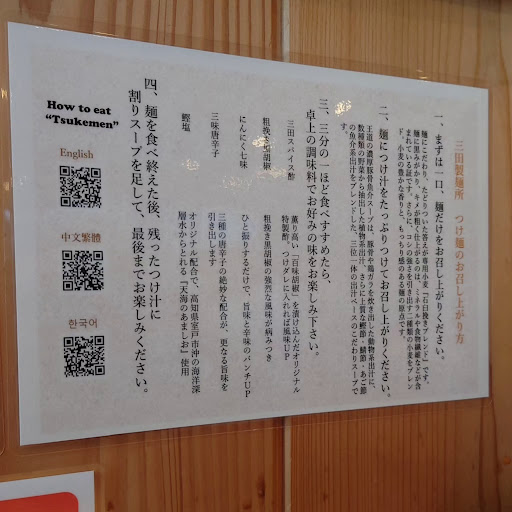 三田製麺所 つけ麺のお召し上がり方
一、まずは一口、麺だけをお召し上がりください。
麺にこだわり、たどりついた答えが専用小麦「石臼挽きブレンド」です。
麺に黒みがかり、キメが粗く仕上がるのは、ミネラルや食物繊維などが含
まれている証です。さらに、コシの強さを引き出す二種類の小麦をブレン
ド。小麦の豊かな香りと、もっちり感のある麺の原点です。
二、麺につけ汁をたっぷりつけてお召し上がりください。
王道の濃厚豚骨魚介スープは、豚骨や鶏ガラを炊き出した動物系出汁に、
数種類の野菜から抽出した植物系出汁、さらに上質な鰹節・鯖節・あご節
の魚介系出汁をブレンドした、三位一体の出汁ベースのこだわりスープで
す。
三、三分の一ほど食べすすめたら、
卓上の調味料でお好みの味をお楽しみ下さい。
三田スパイス酢 薫り高い「百味胡椒」を漬け込んだオリジナル
特製酢。つけダレに入れれば風味UP
粗挽き黒胡椒 粗挽き黒胡椒の強烈な風味が病みつき
にんにく七味 ひと振りするだけで、旨味と辛味のパンチUP
三味唐辛子 三種の唐辛子の絶妙な配合が、更なる旨味を
引き出します
鰹塩 オリジナル配合で、高知県室戸市沖の海洋深
層水からとれる『天海のあましお』使用
四、麺を食べ終えた後、残ったつけ汁に
割りスープを足して、最後までお楽しみください。
How to eat
“Tsukemen”
English
中文繁體
한국어